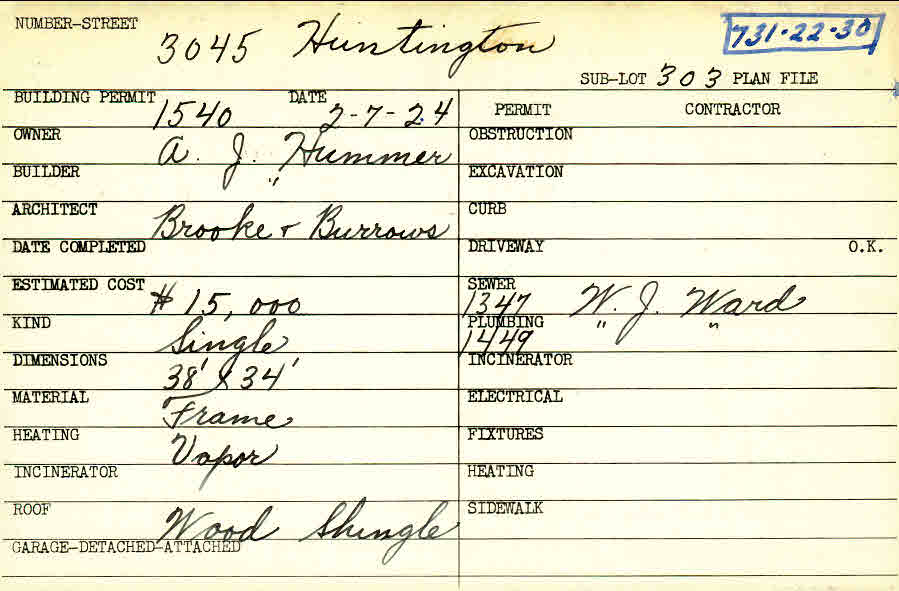 NUMBER-STREET 3045 Huntington 731-22-30
SUB-LOT 303 PLAN FILE
BUILDING PERMIT 1540 DATE 2-7-24 PERMIT CONTRACTOR
OWNER A. J. Hummer OBSTRUCTION
BUILDER " EXCAVATION
ARCHITECT Brooke & Burrows CURB
DATE COMPLETED DRIVEWAY O.K.
ESTIMATED COST $15,000 SEWER 1347 W. J. Ward
KIND Single PLUMBING 1449 " "
DIMENSIONS 38' X 34' INCINERATOR
MATERIAL Frame ELECTRICAL
HEATING Vapor FIXTURES
INCINERATOR HEATING
ROOF Wood Shingle SIDEWALK
GARAGE-DETACHED-ATTACHED